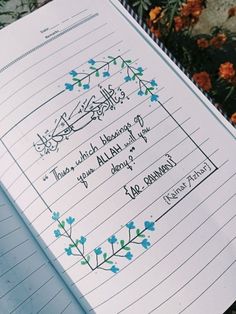 Date:
فَبِأَيِّ آلَاءِ رَبِّكُمَا تُكَذِّبَانِ
"Thus, which blessings of
your ALLAH will you
deny?"
{AR-RAHMAN}
(Kainat Azhar)